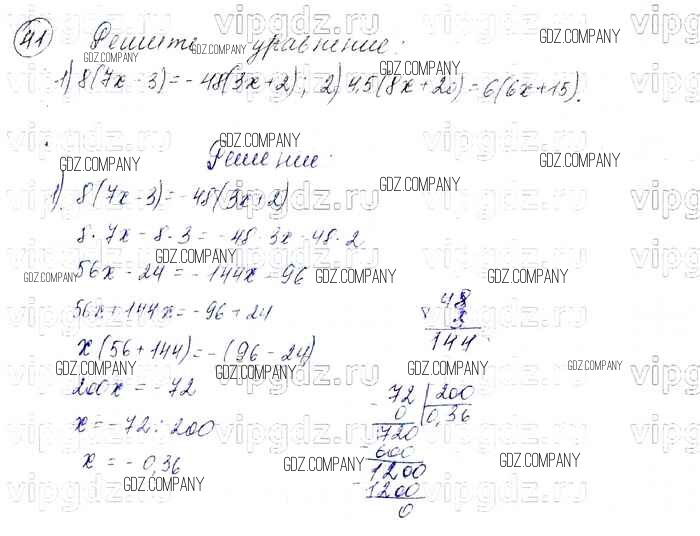 41 Решить уравнение:
1) 8(7x - 3) = - 48(3x + 2); 2) 4,5(8x + 20) = 6(6x + 15).
Решение:
1) 8(7x - 3) = - 48(3x + 2)
8 · 7x - 8 · 3 = - 48 · 3x - 48 · 2
56x - 24 = - 144x - 96
56x + 144x = - 96 + 24
x(56 + 144) = - (96 - 24)
200x = - 72
x = - 72 : 200
x = - 0,36
48
x 3
144
- 72 | 200
0 | 0,36
720
- 600
1200
- 1200
0
vipgdz.ru
GDZ.COMPANY